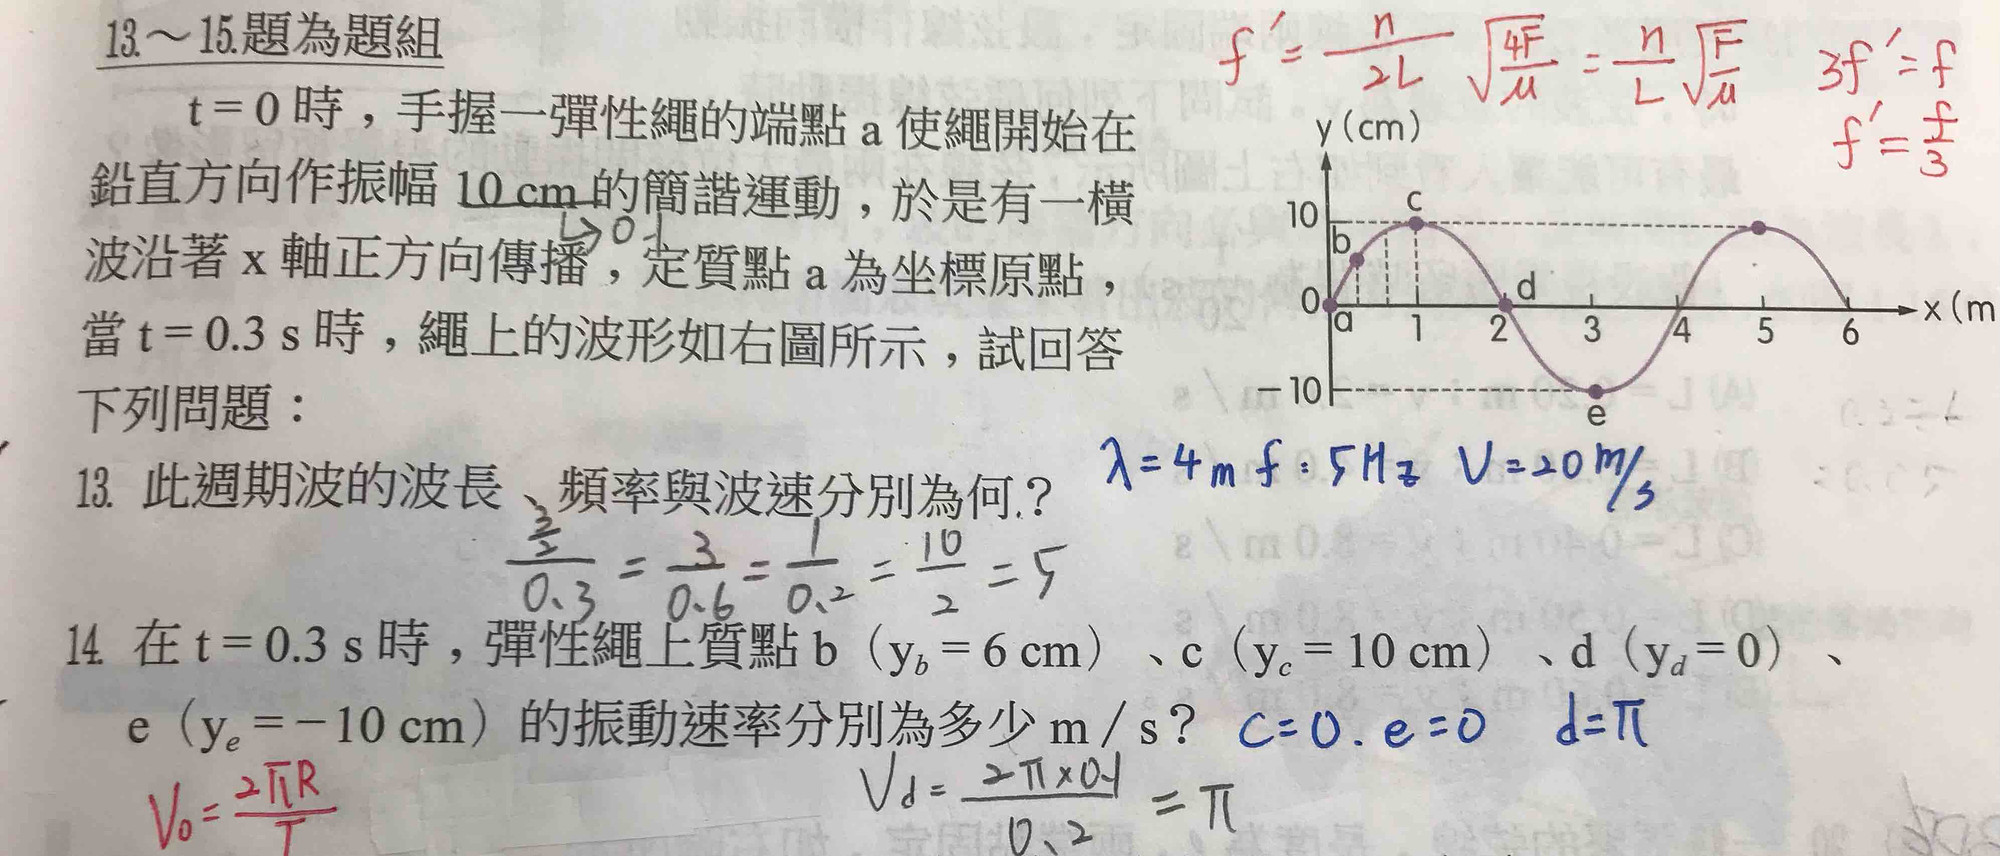 13.～15.題為題組
f' = n/2L √(4F/μ) = n/L √(F/μ) 3f' = f
f' = f/3
t = 0 時，手握一彈性繩的端點 a 使繩開始在
鉛直方向作振幅 10 cm 的簡諧運動，於是有一橫
↳ 0.1
波沿著 x 軸正方向傳播，定質點 a 為坐標原點，
當 t = 0.3 s 時，繩上的波形如右圖所示，試回答
下列問題：
y (cm)
10 c
b
0 a 1 2 d 3 4 5 6 x (m
－10 e
13. 此週期波的波長、頻率與波速分別為何？
λ = 4 m f : 5 Hz V = 20 m/s
(3/2)/0.3 = 3/0.6 = 1/0.2 = 10/2 = 5
14. 在 t = 0.3 s 時，彈性繩上質點 b（y_b = 6 cm）、c（y_c = 10 cm）、d（y_d = 0）、
e（y_e = －10 cm）的振動速率分別為多少 m / s？ c = 0 . e = 0 d = π
V₀ = 2πR/T
V_d = 2π×0.1/0.2 = π